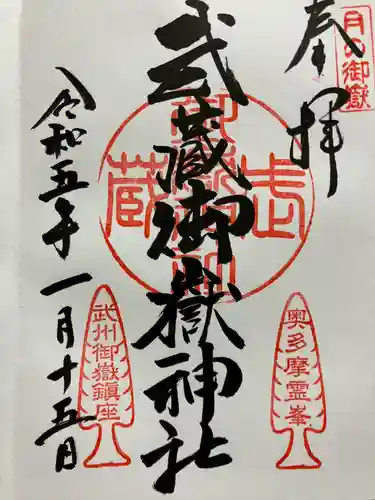 奉拝
月の御嶽
武蔵御嶽神社
武蔵御嶽神社
奥多摩霊峯
武州御嶽鎮座
令和五年一月十五日